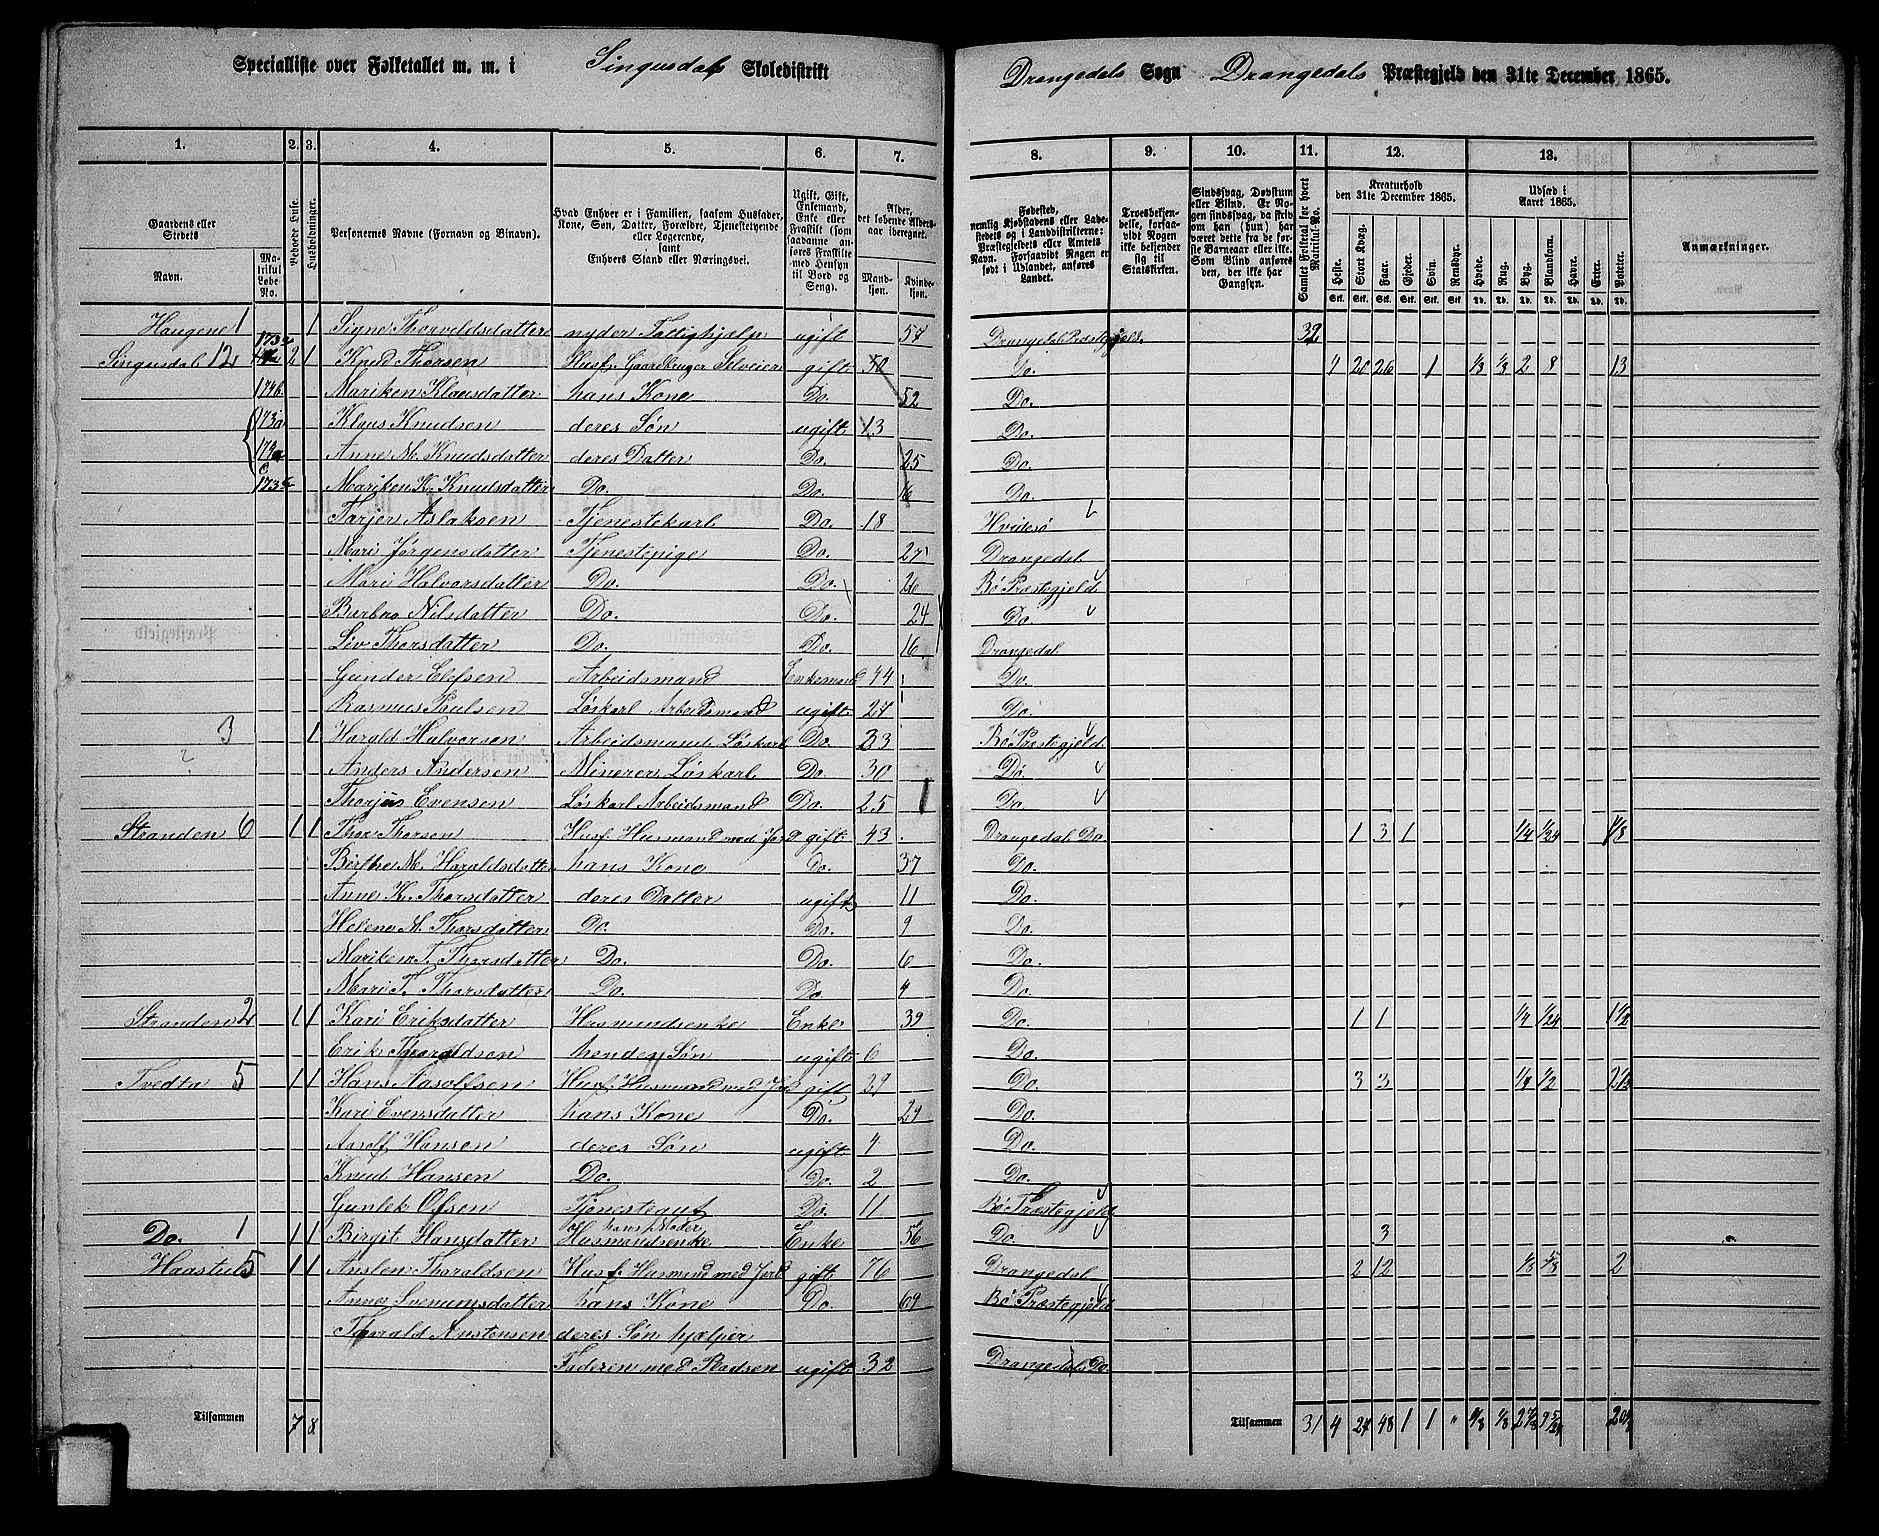 Specialliste over Folketallet m. m. i Singusdals Skoledistrikt Drangedals Sogn Drangedals Præstegjeld den 31te December 1865.
1. 2. 3. 4. 5. 6. 7. 8. 9. 10. 11. 12. 13.
Gaardens eller Stedets Navn. Matrikul Løbe No.
Beboede Huse.
Husholdninger.
Personernes Navne (Fornavn og Binavn).
Hvad Enhver er i Familien, saasom Husfader, Kone, Søn, Datter, Forældre, Tjenestetyende eller Logerende, samt Enhvers Stand eller Næringsvei.
Ugift, Gift, Enkemand, Enke eller Fraskilt (som saadanne anføres Fraskilte med Hensyn til Bord og Seng).
Alder, det løbende Aldersaar iberegnet. Mandkjøn. Kvindekjøn.
Fødested, nemlig Kjøbstadens eller Ladestedets og i Landdistrikterne: Præstegjeldets eller Amtets Navn. Forsaavidt Nogen er født i Udlandet, anføres Landet.
Troesbekjendelse, forsaavidt Nogen ikke bekjender sig til Statskirken.
Sindssvag, Døvstum eller Blind. Er Nogen sindssvag, da skrives om han (hun) har været dette fra de første Barneaar eller ikke. Som Blind anføres den, der ikke har Gangsyn.
Samlet Folketal for hvert Matrikul-No.
Kreaturhold den 31te December 1865. Heste. Stort Kvæg. Faar. Gjeder. Svin. Rensdyr.
Udsæd i Aaret 1865. Hvede. Rug. Byg. Blandkorn. Havre. Erter. Poteter.
Anmærkninger.
Haugene 1 1 Signe Thorvildsdatter nyder Fattighjælp ugift 57 Drangedal Præstegjeld. 32
Singusdal 12 2 1 Knud Thorsen Husf. Gaardbruger Selveier gift 50 Do. 4 20 26 1 1/8 1/8 2 8 13
174b. Mariken Klausdatter hans Kone Do. 52 Do.
173a Klaus Knudsen deres Søn ugift 13 Do.
Anne M. Knudsdatter deres Datter Do. 25 Do.
173c Mariken K. Knudsdatter Do. Do. 16 Do.
Tarjer Aslaksen Tjenestekarl Do. 18 Hvidesø
Mari Jørgensdatter Tjenestepige Do. 27 Drangedal
Mari Halvorsdatter Do. Do. 26 Bø Præstegjeld
Berbro Nilsdatter Do. Do. 24 Do.
Liv Thorsdatter Do. Do. 16 Drangedal
Gunder Elefsen Arbeidsmand Enkemand 44 Do.
Rasmus Poulsen Løskarl Arbeidsmand ugift 27 Do.
3 1 Harald Halvorsen Arbeidsmand Løskarl Do. 23 Bø Præstegjeld
? Anders Andersen Minerer Løskarl Do. 30 Do.
Thorjus Evensen Løskarl Arbeidsmand Do. 25 Do.
Stranden 6 1 1 Thor Thorsen Husf. Husmand med Jord gift 43 Drangedal Do. 1 3 1 1/4 1/24
Birthe M. Haraldsdatter hans Kone Do. 37 Do.
Anne K. Thorsdatter deres Datter ugift 11 Do.
Helene M. Thorsdatter Do. Do. 9 Do.
Mariken T. Thorsdatter Do. Do. 6 Do.
Mari T. Thorsdatter Do. Do 4 Do.
Stranden 2 1 1 Kari Eriksdatter Husmandsenke Enke 39 Do. 1 1 1/4 1/24 1 1/2
Erik Thoraldsen hendes Søn ugift 6 Do.
Tvedta 5 1 1 Hans Aasolfsen Husf. Husmand med Jord gift 29 Do. 3 3 1/4 1/2 2 1/2
Kari Evensdatter hans Kone Do. 29 Do.
Aasolf Hansen deres Søn ugift 4 Do.
Knud Hansen Do. Do. 2 Do.
Gunlek Olsen Tjenestegut Do. 11 Bø Præstegjeld
hans Moder
Do. 1 1 1 Birgit Hansdatter Husmandsenke Enke 56 Do. 3
Haastul 5 1 1 Anslen Thoraldsen Husf. Husmand med Jord gift 76 Drangedal 2 12 1/8 2
Anne Svenumsdatter hans Kone Do 69 Bø Præstegjeld
Thorald Anstensen deres Søn hjælper
Faderen med Bedsen ugift 32 Drangedals Do.
Tilsammen 7 8 Tilsammen 31 4 27 48 1 1 "